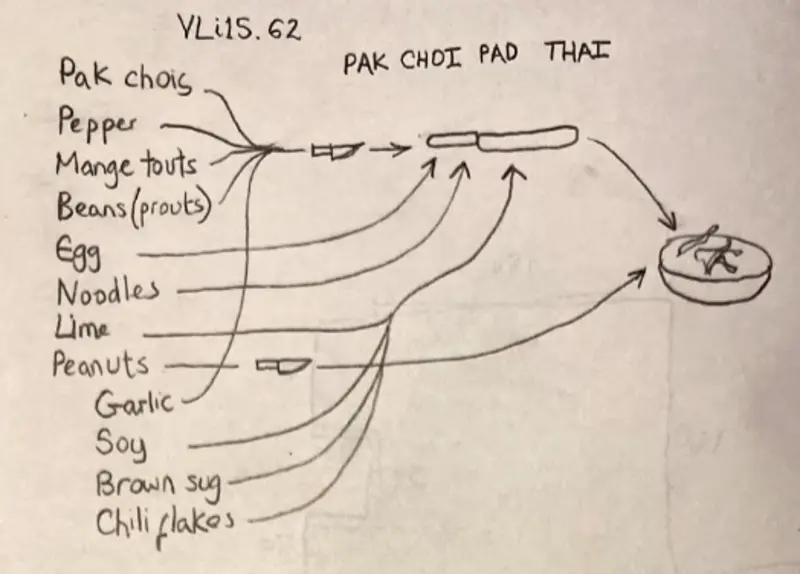 VLi1S.62
PAK CHOI PAD THAI
Pak chois
Pepper
Mange touts
Beans(prouts)
Egg
Noodles
Lime
Peanuts
Garlic
Soy
Brown sug
Chili flakes